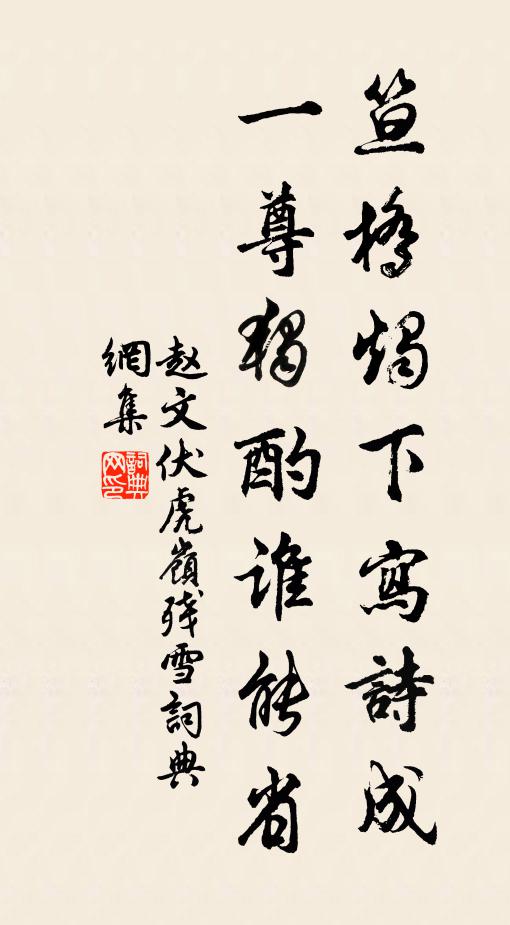 笪橋燭下寫詩成
一尊獨酌誰能省
赵文伏虎嶺残雪詞典
網集
詞典網印